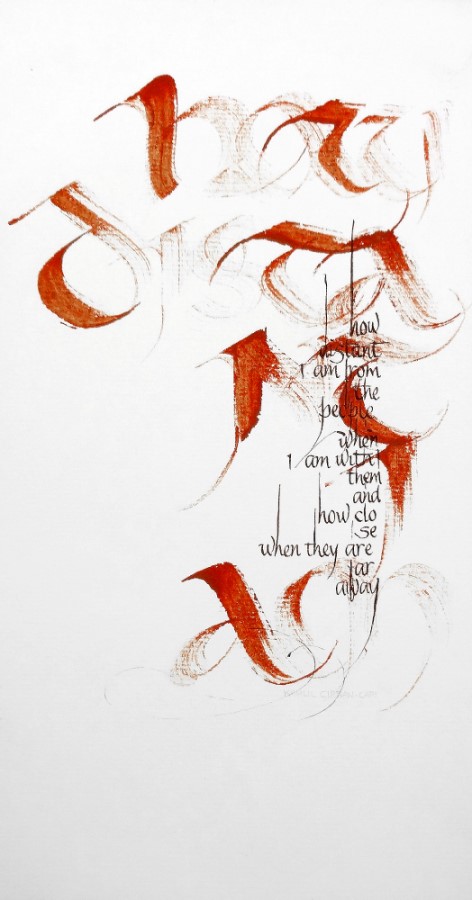 how
dista
how
distant
I am from
the
people
when
I am with
them
and
how clo
se
when they are
far
away